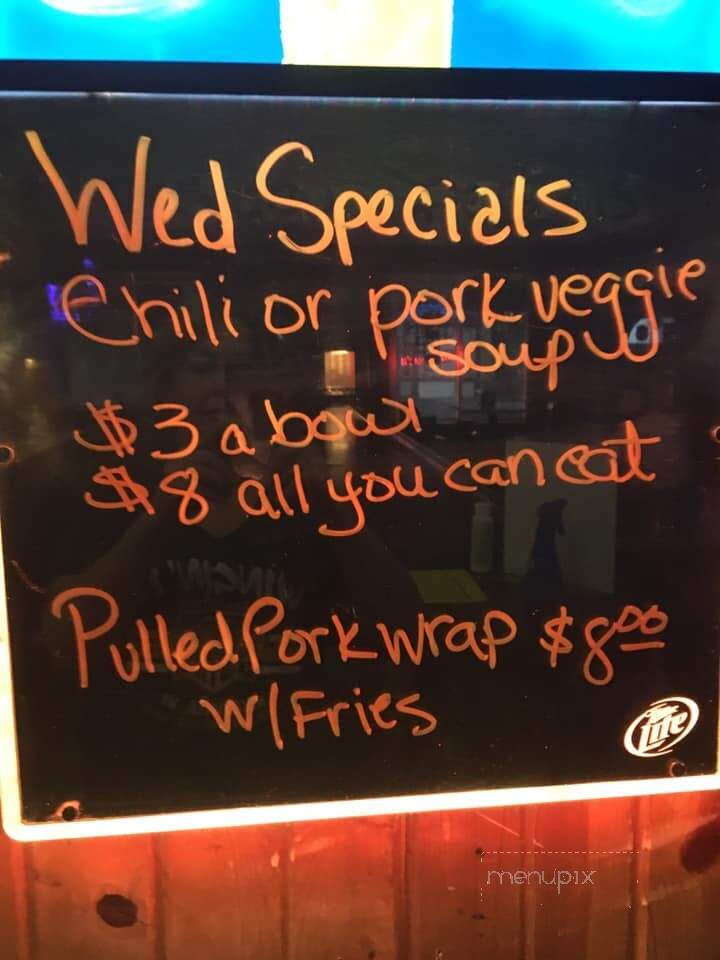 Wed Specials
Chili or pork veggie
soup
$3 a bowl
$8 all you can eat
Pulled Pork wrap $8.00
w/Fries
Lite
menupix